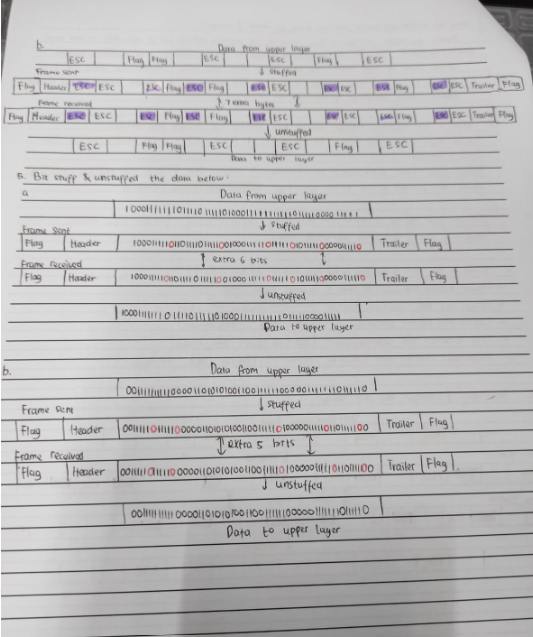 b.
Data from upper layer
ESC Flag Flag ESC ESC Flag ESC
Frame sent ↓ stuffed
Flag Header ESC ESC ESC Flag ESC Flag ESC ESC ESC ESC ESC Flag ESC ESC Trailer Flag
Frame received 7 extra bytes
Flag Header ESC ESC ESC Flag ESC Flag ESC ESC ESC ESC ESC Flag ESC ESC Trailer Flag
↓ unstuffed
ESC Flag Flag ESC ESC Flag ESC
Data to upper layer
5. Bit stuff & unstuffed the data below.
a
Data from upper layer
↓ stuffed
Frame sent
Flag Header Trailer Flag
Frame received extra 6 bits
Flag Header Trailer Flag
↓ unstuffed
Data to upper layer
b.
Data from upper layer
↓ stuffed
Frame sent
Flag Header Trailer Flag
extra 5 bits
Frame received
Flag Header Trailer Flag
↓ unstuffed
Data to upper layer